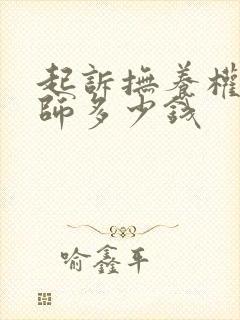 起訴撫養權
師多少錢
喻鑫平